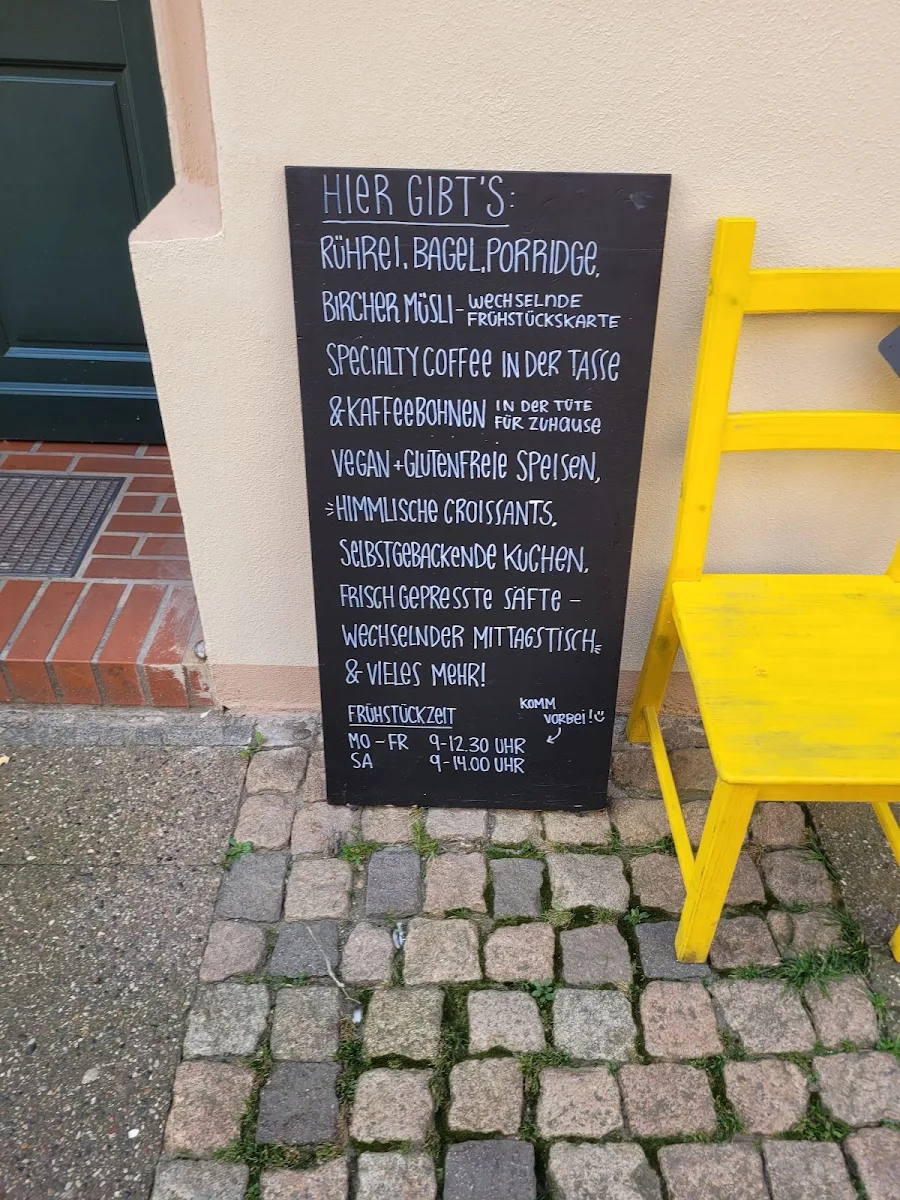 HIER GIBT'S:
RÜHREI, BAGEL, PORRIDGE,
BIRCHER MÜSLI - WECHSELNDE
FRÜHSTÜCKSKARTE
SPECIALTY COFFEE IN DER TASSE
& KAFFEEBOHNEN IN DER TÜTE
FÜR ZUHAUSE
VEGAN + GLUTENFREIE SPEISEN,
HIMMLISCHE CROISSANTS,
SELBSTGEBACKENDE KUCHEN,
FRISCH GEPRESSTE SÄFTE -
WECHSELNDER MITTAGSTISCH
& VIELES MEHR!
FRÜHSTÜCKZEIT
MO - FR 9-12.30 UHR
SA 9-14.00 UHR
KOMM
VORBEI!